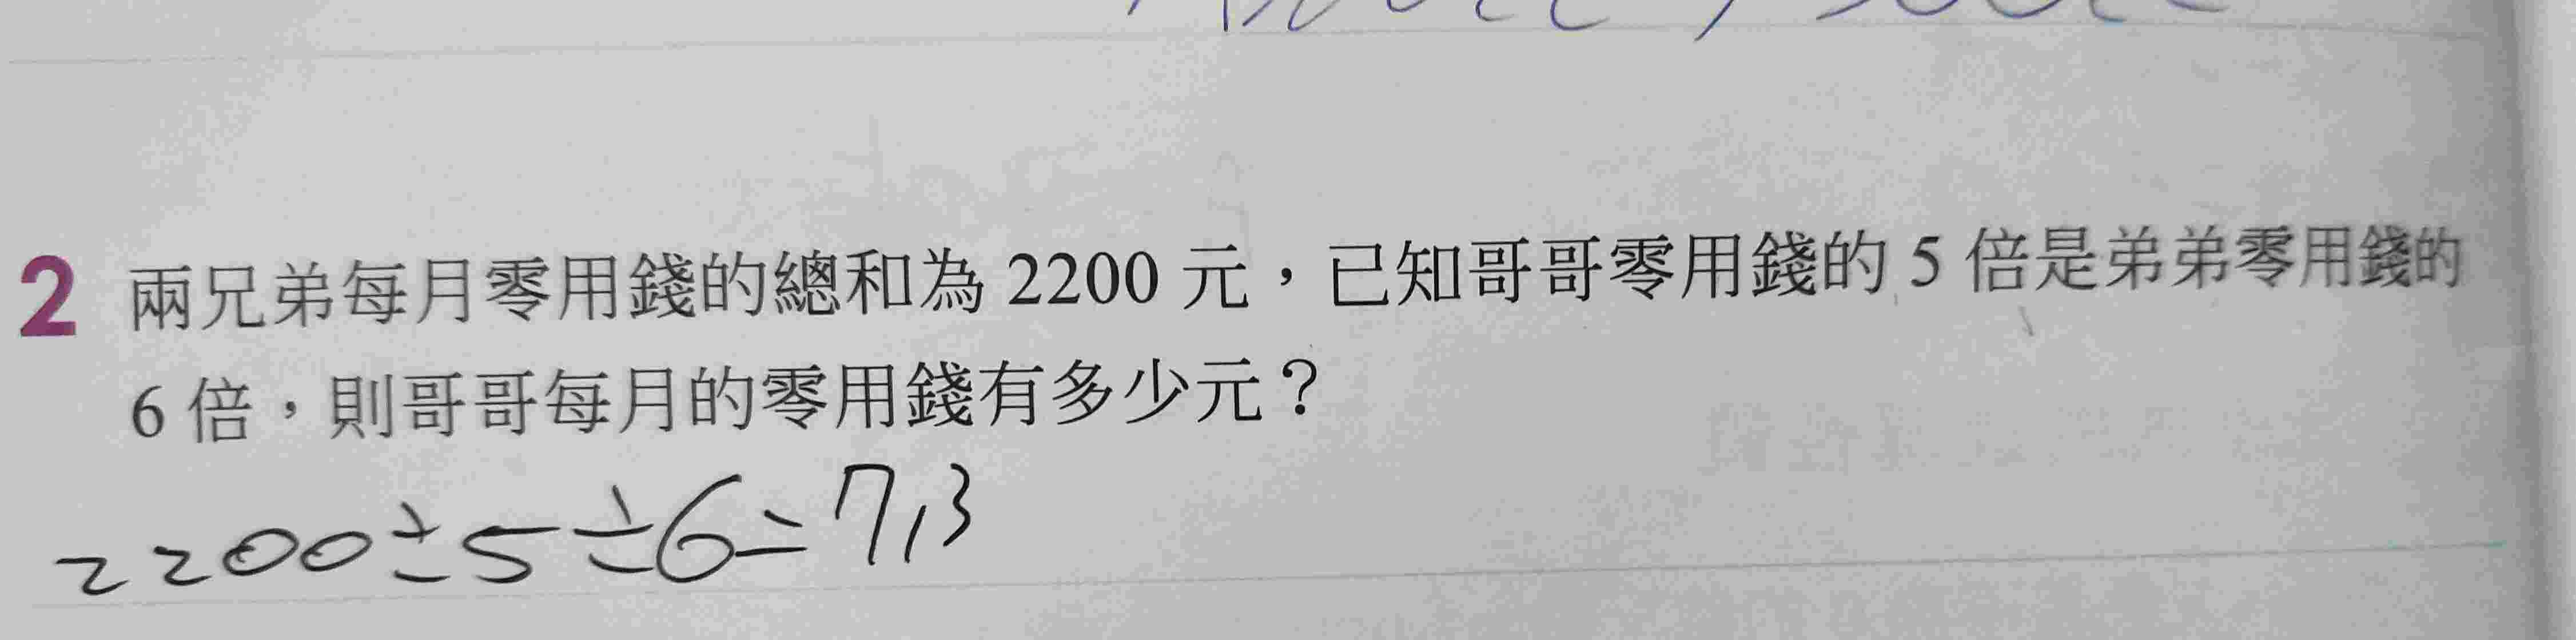 2 兩兄弟每月零用錢的總和為 2200 元，已知哥哥零用錢的 5 倍是弟弟零用錢的
6 倍，則哥哥每月的零用錢有多少元？
2200÷5÷6=7,3